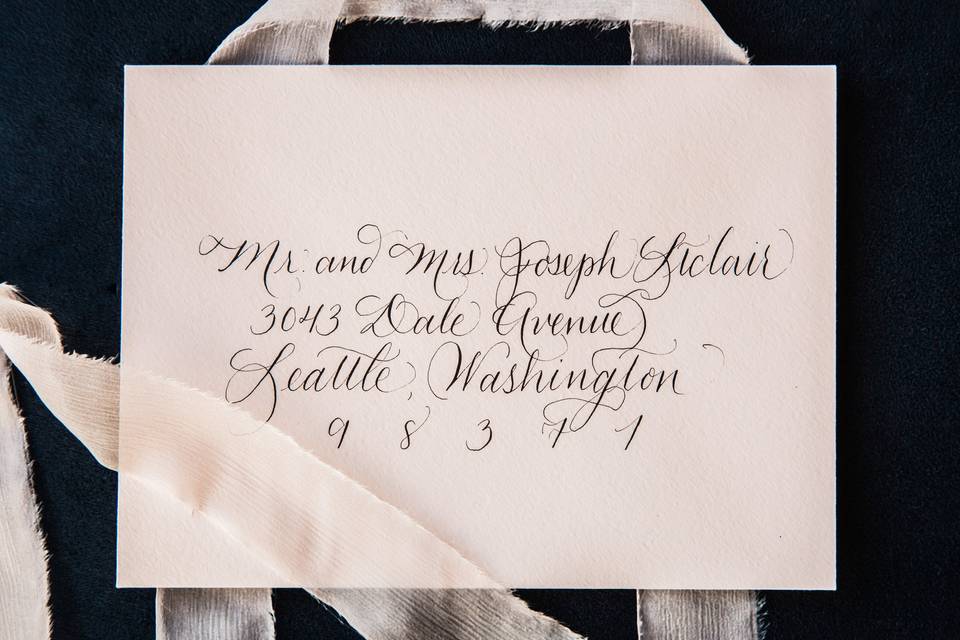 Mr. and Mrs. Joseph Stclair
3043 Dale Avenue
Seattle, Washington
9 8 3 7 1